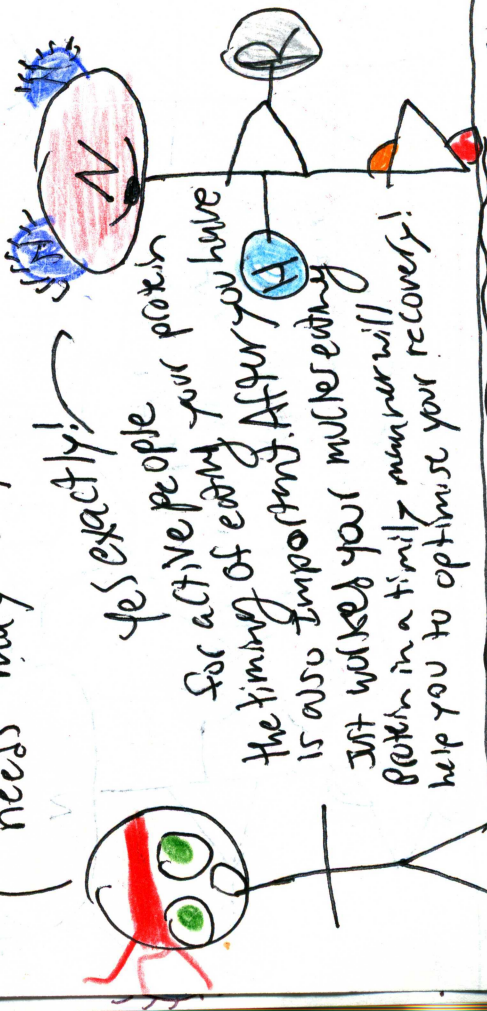 needs may
Yes exactly!
for active people
the timing of eating your protein
is also Important. After you have
Just worked your mucles eating
Protein in a timily manner will
help you to optimise your recovery!
H
N
H
R
H